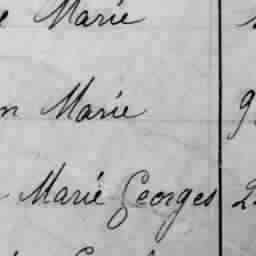 Marie
Marie 9
Marié Georges 2